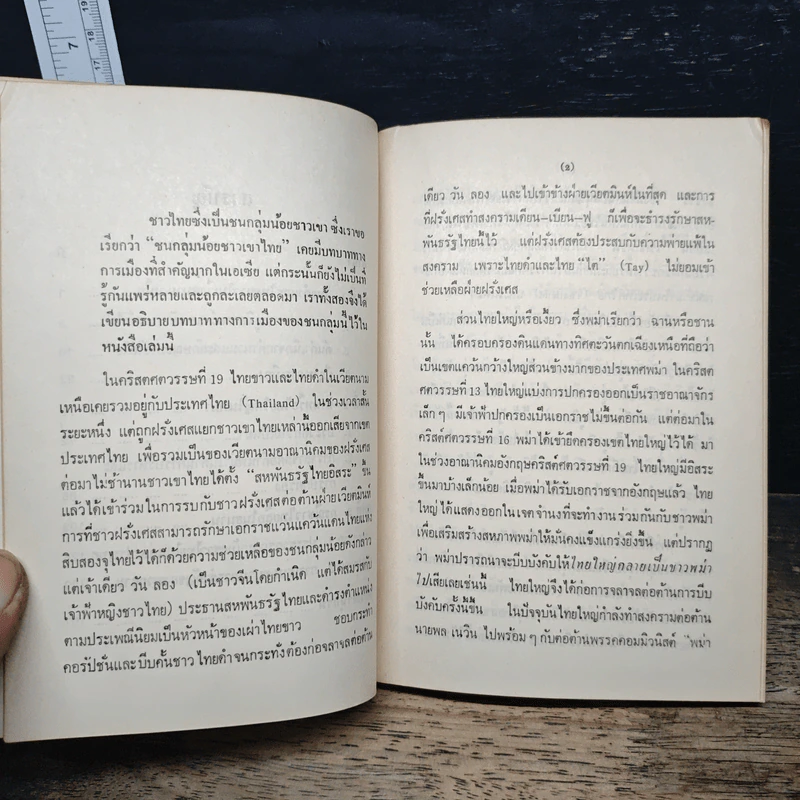 ชาวไทยซึ่งเป็นชนกลุ่มน้อยชาวเขา ซึ่งเราขอ
เรียกว่า “ชนกลุ่มน้อยชาวเขาไทย” เคยมีบทบาททาง
การเมืองที่สำคัญมากในเอเซีย แต่กระนั้นก็ยังไม่เป็นที่
รู้กันแพร่หลายและถูกละเลยตลอดมา เราทั้งสองจึงได้
เขียนอธิบายบทบาททางการเมืองของชนกลุ่มนี้ไว้ใน
หนังสือเล่มนี้
ในคริสตศตวรรษที่ 19 ไทยขาวและไทยดำในเวียดนาม
เหนือเคยรวมอยู่กับประเทศไทย (Thailand) ในช่วงเวลาสั้น
ระยะหนึ่ง แต่ถูกฝรั่งเศสแยกชาวเขาไทยเหล่านี้ออกเสียจากเขต
ประเทศไทย เพื่อรวมเป็นของเวียดนามอาณานิคมของฝรั่งเศส
ต่อมาไม่ช้านานชาวเขาไทยได้ตั้ง “สหพันธรัฐไทยอิสระ” ขึ้น
แล้วได้เข้าร่วมในการรบกับชาวฝรั่งเศสต่อต้านฝ่ายเวียดมินห์
การที่ชาวฝรั่งเศสสามารถรักษาเอกราชแว่นแคว้นแดนไทยแห่ง
สิบสองจุไทยไว้ได้ก็ด้วยความช่วยเหลือของชนกลุ่มน้อยดังกล่าว
แต่เจ้าเดียว วัน ลอง (เป็นชาวจีนโดยกำเนิด แต่ได้สมรสกับ
เจ้าฟ้าหญิงชาวไทย) ประธานสหพันธรัฐไทยและดำรงตำแหน่ง
ตามประเพณีนิยมเป็นหัวหน้าของเผ่าไทยขาว ชอบกระทำ
คอรัปชั่นและบีบคั้นชาวไทยดำจนกระทั่งต้องก่อจลาจลต่อต้าน
(2)
เดียว วัน ลอง และไปเข้าข้างฝ่ายเวียดมินห์ในที่สุด และการ
ที่ฝรั่งเศสทำสงครามเดียน-เบียน-ฟู ก็เพื่อจะธำรงรักษาสห-
พันธรัฐไทยนี้ไว้ แต่ฝรั่งเศสต้องประสบกับความพ่ายแพ้ใน
สงคราม เพราะไทยดำและไทย “ไต” (Tay) ไม่ยอมเข้า
ช่วยเหลือฝ่ายฝรั่งเศส
ส่วนไทยใหญ่หรือเงี้ยว ซึ่งพม่าเรียกว่า ฉานหรือซาน
นั้น ได้ครอบครองดินแดนทางทิศตะวันตกเฉียงเหนือที่ถือว่า
เป็นเขตแคว้นกว้างใหญ่ส่วนข้างมากของประเทศพม่า ในคริสต์
ศตวรรษที่ 13 ไทยใหญ่แบ่งการปกครองออกเป็นราชอาณาจักร
เล็กๆ มีเจ้าฟ้าปกครองเป็นเอกราชไม่ขึ้นต่อกัน แต่ต่อมาใน
คริสต์ศตวรรษที่ 16 พม่าได้เข้ายึดครองเขตไทยใหญ่ไว้ได้ มา
ในช่วงอาณานิคมอังกฤษคริสต์ศตวรรษที่ 19 ไทยใหญ่มีอิสระ
ขึ้นมาบ้างเล็กน้อย เมื่อพม่าได้รับเอกราชจากอังกฤษแล้ว ไทย
ใหญ่ได้แสดงออกในเจตจำนงที่จะทำงานร่วมกันกับชาวพม่า
เพื่อเสริมสร้างสหภาพพม่าให้มั่นคงแข็งแกร่งยิ่งขึ้น แต่ปรากฏ
ว่า พม่าปรารถนาจะบีบบังคับให้ไทยใหญ่กลายเป็นชาวพม่า
ไปเสียเลยเช่นนี้ ไทยใหญ่จึงได้ก่อการจลาจลต่อต้านการบีบ
บังคับครั้งนี้ขึ้น ในปัจจุบันไทยใหญ่กำลังทำสงครามต่อต้าน
นายพล เนวิน ไปพร้อมๆ กับต่อต้านพรรคคอมมิวนิสต์ “พม่า